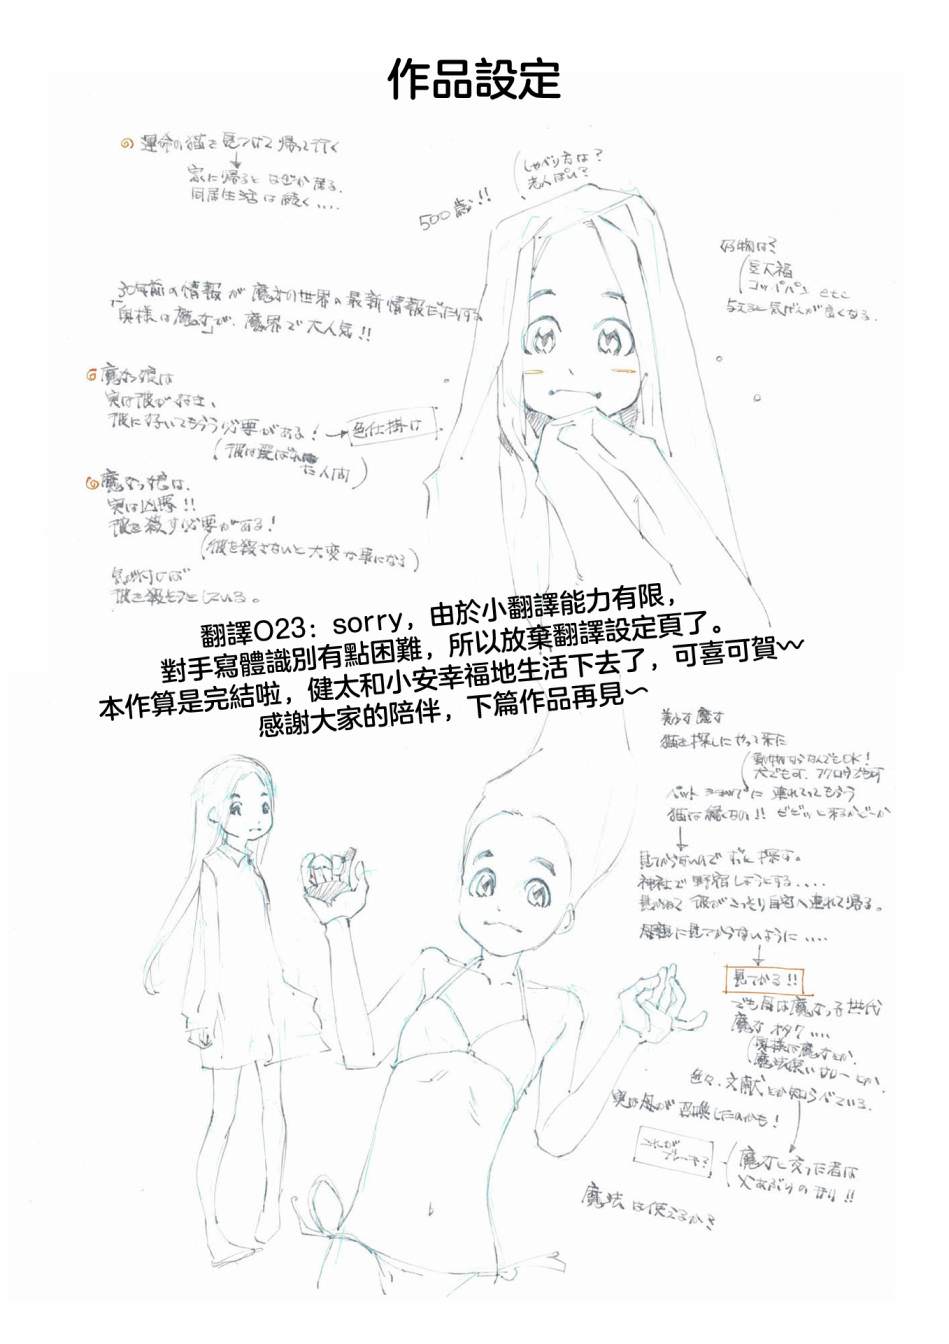 作品設定
運命の猫を見つけて帰って行く
家に帰るとなぜか居る。
同居生活は続く....
しゃべり方は?
老人ぽい?
500歳!!
好物は?
豆大福
コッペパン etc
与えると気げんが良くなる.
30年前の情報が魔女の世界の最新情報だったりする
「奥様は魔女」が、魔界で大人気!!
魔女っ娘は
実は彼が好き、
彼に好いてもらう必要がある! → 色仕掛け
(彼は選ばれた人間)
魔女っ娘は、
実は凶悪!!
彼を殺す必要がある!
(彼を殺さないと大変な事になる)
気が付けば
彼を殺そうとしている。
翻譯O23：sorry，由於小翻譯能力有限，
對手寫體識別有點困難，所以放棄翻譯設定頁了。
本作算是完結啦，健太和小安幸福地生活下去了，可喜可賀~~
感謝大家的陪伴，下篇作品再見~
猫を探しにやって来た
動物ならなんでもOK!
犬でも可、フクロウでも可
ペットショップに連れてってもらう
見つからないので ずっと探す。
神社で野宿しようとする....
見かねて彼がこっそり自宅へ連れて帰る。
母親に見つからないように....
見つかる!!
でも母は魔女っ子世代
魔女オタク....
奥様は魔女とか
魔法使いサリーとか
色々、文献とか知らべている.
実は母が召喚したのかも!
これが
テーマ?
魔女と交った者は
火あぶりの刑!!
魔法は使えるか?